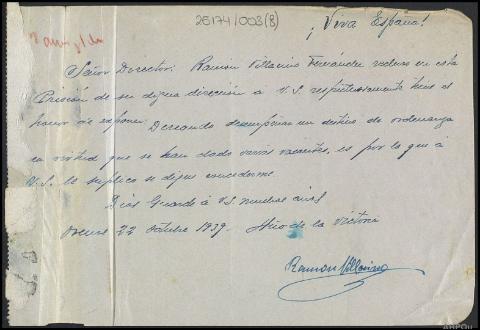 26174/003(8)
¡Viva España!
Señor Director: Ramón Villarino Fernández recluso en esta
Prisión de su digna dirección á V.S. respetuosamente tiene el
honor de exponer: Deseando desempeñar un destino de ordenanza
en virtud que se han dado varias vacantes, es por lo que á
V.S. le suplico se digne concederme
Dios Guarde á V.S. muchos años
Orense 22 Octubre 1939. Año de la Victoria
Ramon Villarino